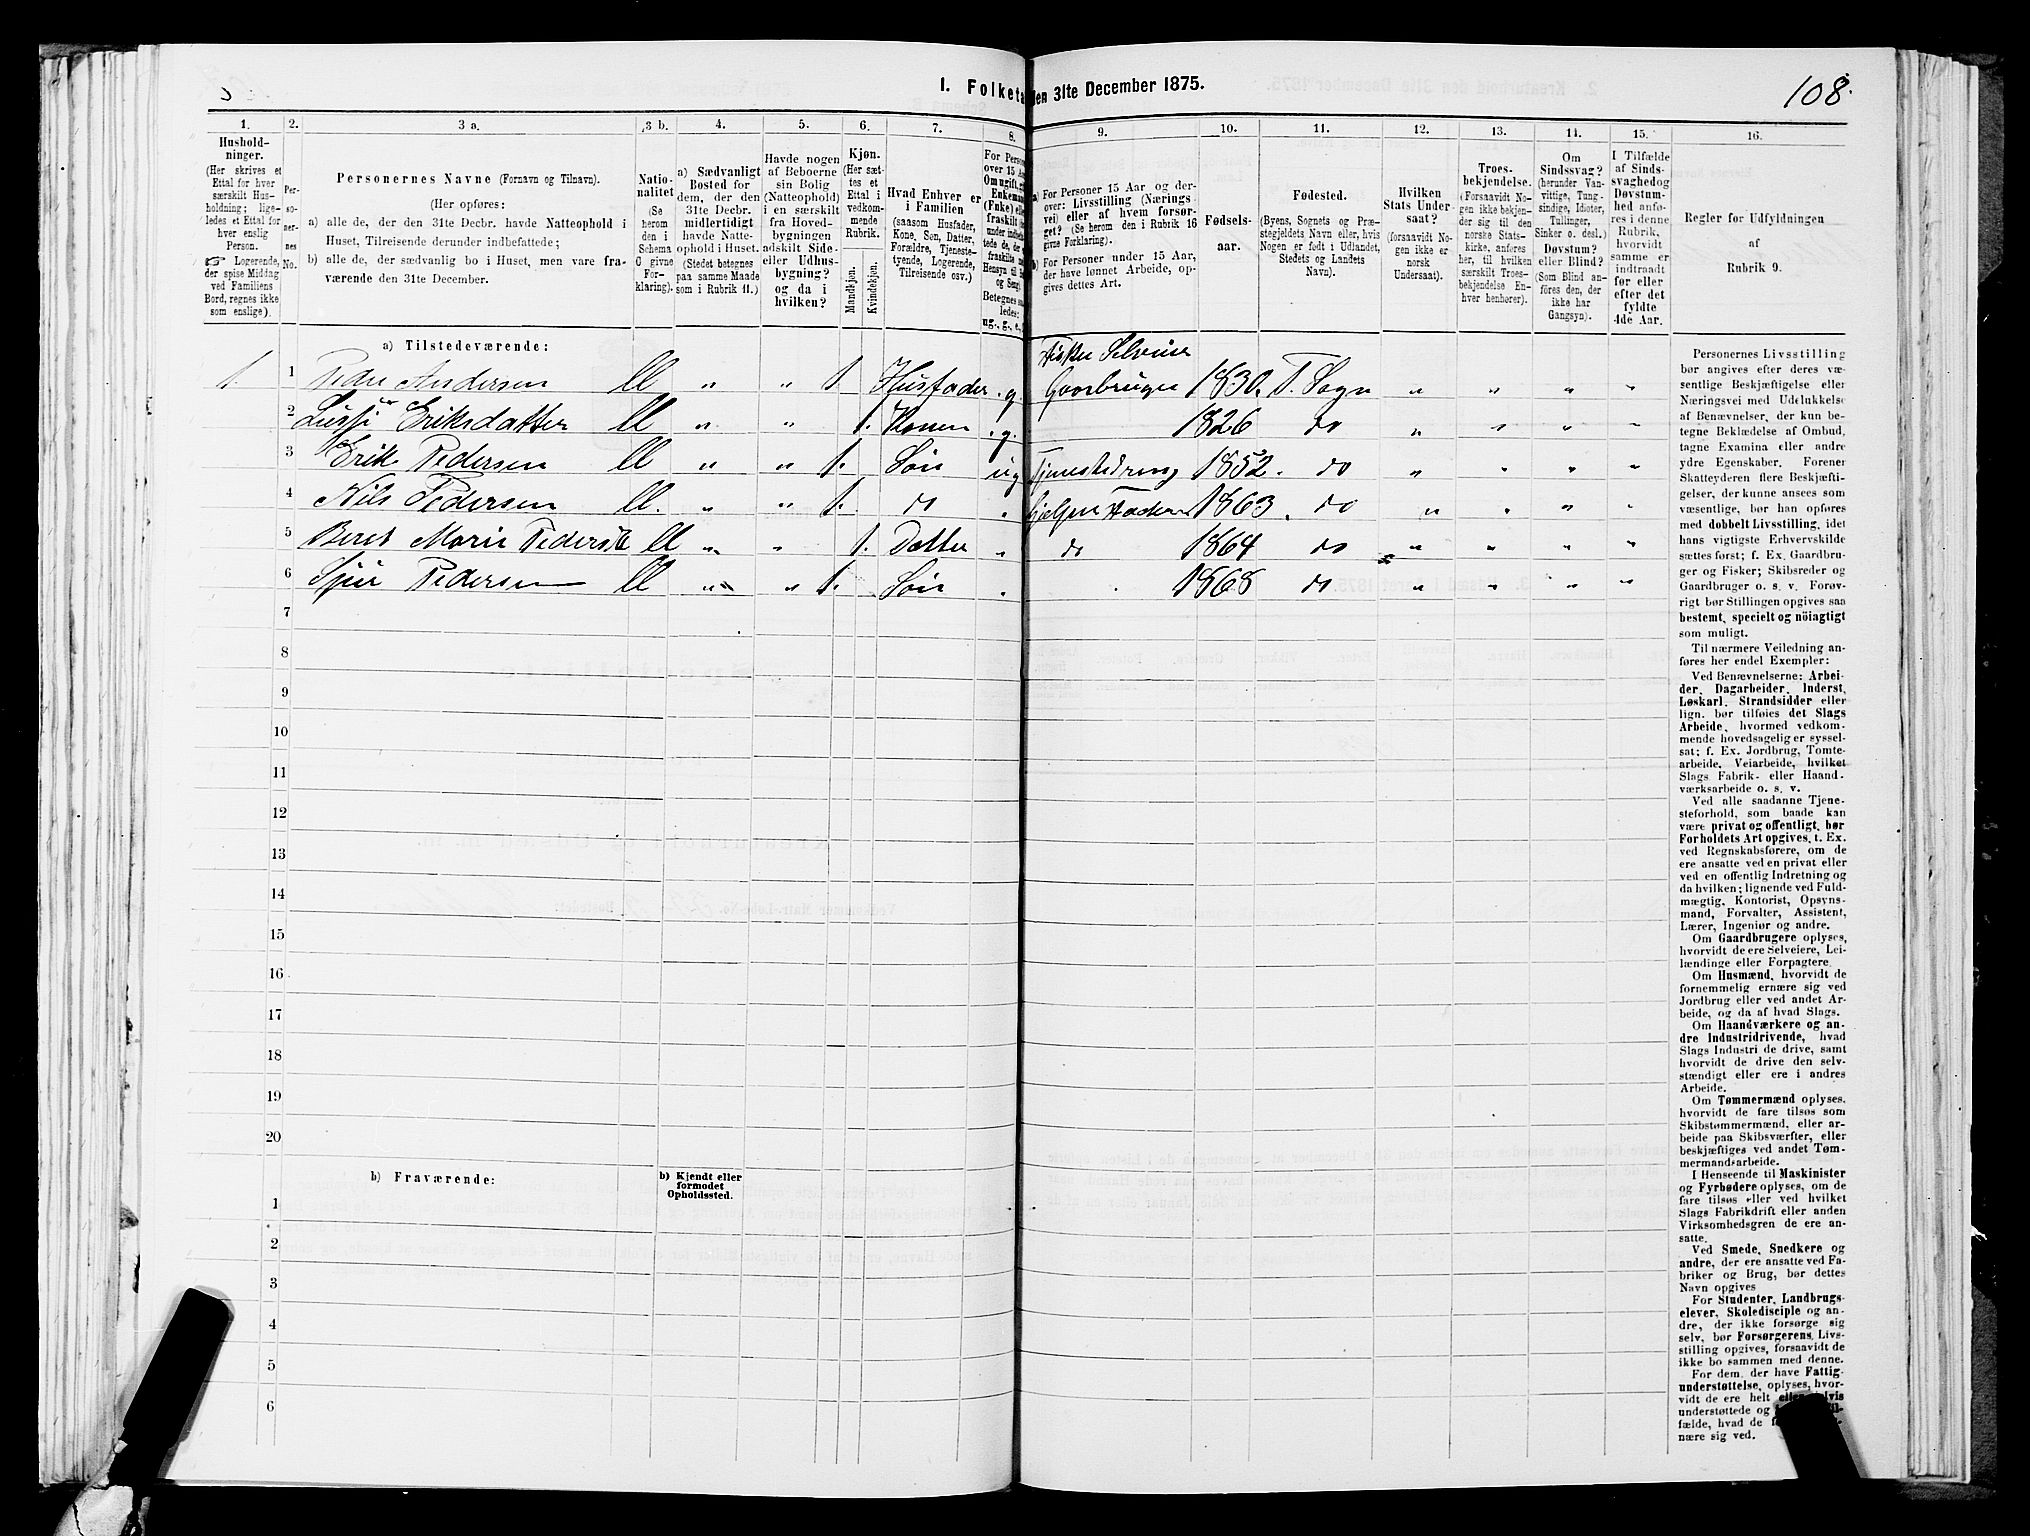 108.
I. Folketa
den 31te December 1875.
1.
2.
3 a.
3 b.
4.
5.
6.
7.
8.
9.
10.
11.
12.
13.
14.
15.
16.
Hushold-
ninger.
(Her skrives et
Ettal for hver
særskilt Hus-
holdning; lige-
ledes et Ettal for
hver enslig
Person.
☞ Logerende,
der spise Middag
ved Familiens
Bord, regnes ikke
som enslige).
Per-
so-
ner-
nes
No.
Personernes Navne (Fornavn og Tilnavn).
(Her opføres:
a) alle de, der den 31te Decbr. havde Natteophold i
Huset, Tilreisende derunder indbefattede;
b) alle de, der sædvanlig bo i Huset, men vare fra-
værende den 31te December.
Natio-
nalitet
(Se
herom
den i
Schema
C givne
For-
klaring).
a) Sædvanligt
Bosted for
dem, der den
31te Decbr.
midlertidigt
havde Natte-
ophold i Huset.
(Stedet betegnes
paa samme Maade
som i Rubrik 11.)
Havde nogen
af Beboerne
sin Bolig
(Natteophold)
i en særskilt
fra Hoved-
bygningen
adskilt Side-
eller Udhus-
bygning?
og da i
hvilken?
Kjøn.
(Her sæt-
tes et
Ettal i
vedkom-
mende
Rubrik.
Mandkjøn.
Kvindekjøn.
Hvad Enhver er
i Familien
(saasom Husfader,
Kone, Søn, Datter,
Forældre, Tjeneste-
tyende, Logerende,
Tilreisende osv.)
For Perso
over 15 Aa
Om ugift, g
Enkema
(Enke) el
fraskilt
tede de, de
fraskilte
Hensyn til
og Seng
Betegnes s
ledes:
ug., g., e.,
a) For Personer 15 Aar og der-
over: Livsstilling (Nærings-
vei) eller af hvem forsør-
get? (Se herom i Rubrik 16
givne Forklaring).
b) For Personer under 15 Aar,
der have lønnet Arbeide, op-
gives dettes Art.
Fødsels-
aar.
Fødested.
(Byens, Sognets og Præ-
stegjeldets Navn eller, hvis
Nogen er født i Udlandet,
Stedets og Landets
Navn).
Hvilken
Stats Under-
saat?
(forsaavidt No-
gen ikke er
norsk
Undersaat).
Troes-
bekjendelse.
(Forsaavidt No-
gen ikke bekjen-
der sig til den
norske Stats-
kirke, anføres
her, til hvilken
særskilt Troes-
bekjendelse En-
hver henhører).
Om
Sindssvag?
(herunder Van-
vittige, Tung-
sindige, Idioter,
Tullinger,
Sinker o. desl.)
Døvstum?
eller Blind?
(Som Blind an-
føres den, der
ikke har
Gangsyn).
I Tilfælde
af Sinds-
svaghed og
Døvstum-
hed anfø-
res i denne
Rubrik,
hvorvidt
samme er
indtraadt
før eller
efter det
fyldte
4de Aar.
Regler for Udfyldningen
af
Rubrik 9.
a) Tilstedeværende:
1. 1 Peder Andersen ll „ „ 1. Husfader g Fisker Selveier
Gaardbruger 1830. T. Sogn „ „ „ „
2 Eriksdatter ll „ „ 1. Konen g. 1826 do „ „ „ „
3 Erik Pedersen ll „ „ 1. Søn ug Tjenestedreng 1852. do „ „ „ „
4 Nils Pedersen ll. „ „ 1. do „ Hjelper Faderen 1863. do „ „ „ „
5 Beret Marie Pedersd ll „ „ 1. Datter „ do 1864 do „ „ „ „
6 Pedersen ll „ „ 1. Søn „ 1868 do „ „ „ „
7
8
9
10
11
12
13
14
15
16
17
18
19
20
b) Fraværende:
b) Kjendt eller
formodet
Opholdssted.
1
2
3
4
5
6
Personernes Livsstilling
bør angives efter deres væ-
sentlige Beskjæftigelse eller
Næringsvei med Udelukkelse
af Benævnelser, der kun be-
tegne Beklædelse af Ombud,
tagne Examina eller andre
ydre Egenskaber. Forener
Skatteyderen flere Beskjæfti-
gelser, der kunne ansees som
væsentlige, bør han opføres
med dobbelt Livsstilling, idet
hans vigtigste Erhvervskilde
sættes først; f. Ex. Gaardbru-
ger og Fisker; Skibsreder og
Gaardbruger o. s. v. Forøv-
rigt bør Stillingen opgives saa
bestemt, specielt og nöiagtigt
som muligt.
Til nærmere Veiledning an-
føres her endel Exempler:
Ved Benævnelserne: Arbei-
der, Dagarbeider, Inderst,
Løskarl, Strandsidder eller
lign. bør tilføies det Slags
Arbeide, hvormed vedkom-
mende hovedsagelig er syssel-
sat; f. Ex. Jordbrug, Tomte-
arbeide, Veiarbeide, hvilket
Slags Fabrik- eller Haand-
værksarbeide o. s. v.
Ved alle saadanne Tjene-
steforhold, som baade kan
være privat og offentligt, bør
Forholdets Art opgives, t. Ex.
ved Regnskabsførere, om de
ere ansatte ved en privat eller
ved en offentlig Indretning og
da hvilken; lignende ved Fuld-
mægtig, Kontorist, Opsyns-
mand, Forvalter, Assistent,
Lærer, Ingeniør og andre.
Om Gaardbrugere oplyses,
hvorvidt de ere Selveiere, Lei-
lændinge eller Forpagtere.
Om Husmænd, hvorvidt de
fornemmelig ernære sig ved
Jordbrug eller ved andet Ar-
beide, og da af hvad Slags.
Om Haandværkere og an-
dre Industridrivende, hvad
Slags Industri de drive, samt
hvorvidt de drive den selv-
stændigt eller ere i andres
Arbeide.
Om Tømmermænd oplyses,
hvorvidt de fare tilsøs som
Skibstømmermænd, eller ar-
beide paa Skibsværfter, eller
beskjæftiges ved andet Tøm-
mermandsarbeide.
I Henseende til Maskinister
og Fyrbødere oplyses, om de
fare tilsøs eller ved hvilket
Slags Fabrikdrift eller anden
Virksomhedsgren de ere an-
satte.
Ved Smede, Snedkere og
andre, der ere ansatte ved Fa-
briker og Brug, bør dettes
Navn opgives
For Studenter, Landbrugs-
elever, Skoledisciple og an-
dre, der ikke forsørge sig
selv, bør Forsørgerens Livs-
stilling opgives, forsaavidt de
ikke bo sammen med denne.
For dem, der have Fattig-
understøttelse, oplyses, hvor-
vidt de ere helt eller delvis
understøttede og
fælde, hvad de
nære sig ved.